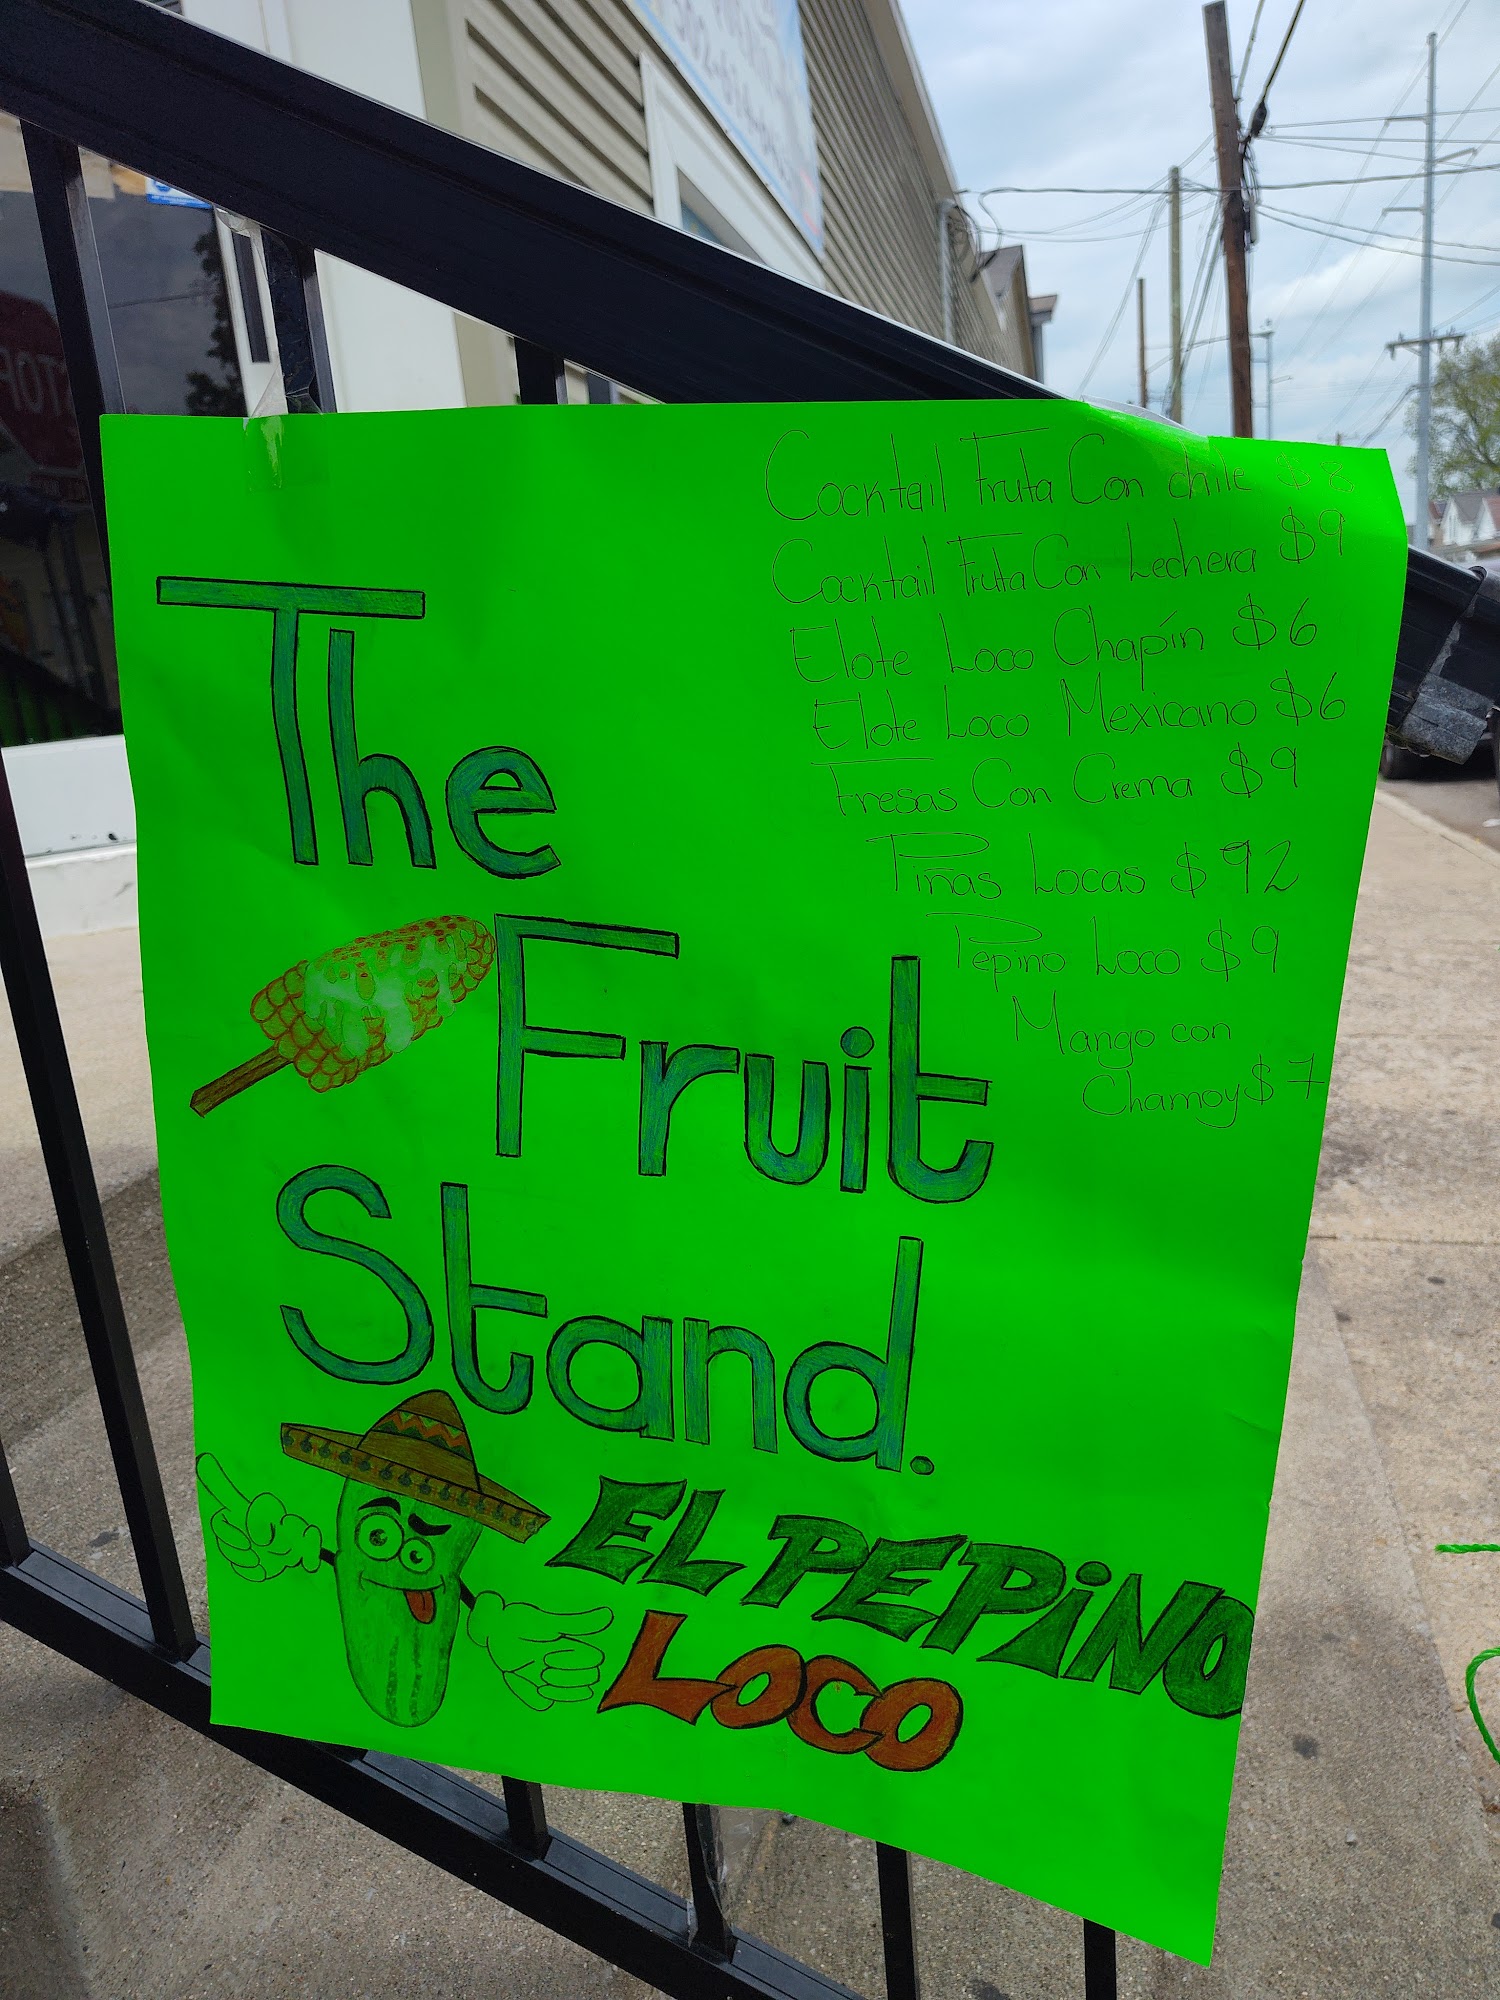 The
Fruit
Stand.
EL PEPiNO
Loco
Cocktail Fruta Con chile $8
Cocktail Fruta Con Lechera $9
Elote Loco Chapín $6
Elote Loco Mexicano $6
Fresas Con Crema $9
Piñas Locas $92
Pepino Loco $9
Mango con
Chamoy $7
STOP